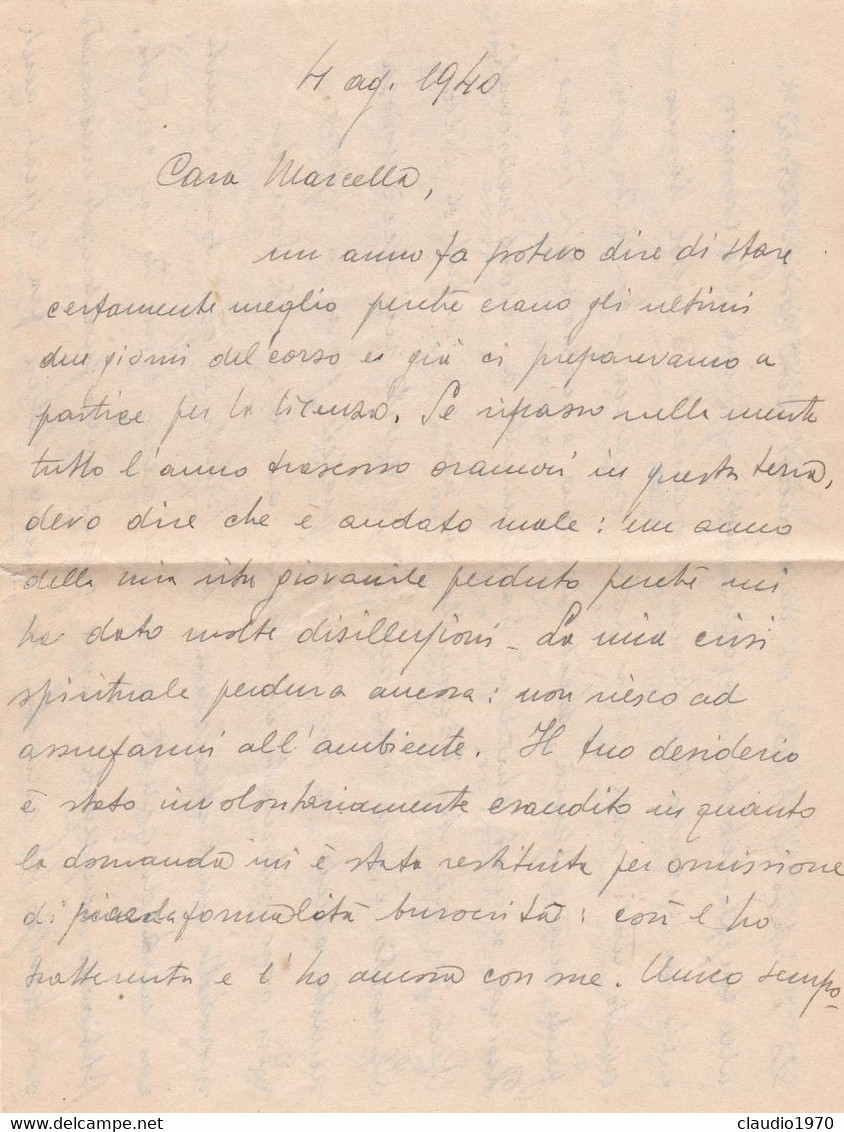 4 ag. 1940
Cara Marcella,
un anno fa potevo dire di stare
certamente meglio perchè erano gli ultimi
due giorni del corso e già ci preparavamo a
partire per la licenza. Se ripasso nella mente
tutto l'anno trascorso oramai in questa terra,
devo dire che è andato male: un anno
della mia vita giovanile perduto perchè mi
ha dato molte disillusioni - La mia crisi
spirituale perdura ancora: non riesco ad
assuefarmi all'ambiente. Il tuo desiderio
è stato involontariamente esaudito in quanto
la domanda mi è stata restituita per omissione
di formalità: così l'ho
trattenuta e l'ho ancora con me. Unico scopo
claudio1970